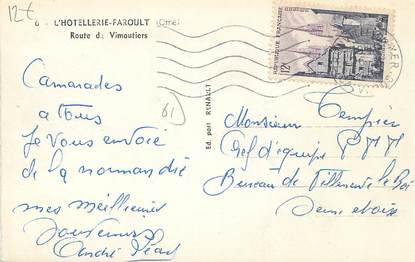 12t
6 L'HOTELLERIE-FAROULT (Orne)
Route de Vimoutiers
REPUBLIQUE FRANÇAISE
12F
Camarades
a tous
je vous envoie
de la normandie
mes meilleures
souvenirs
André
61
Ed. port RENAULT
Monsieur Tempier
Chef d'équipe PTT
Bureau de Villeneuve le Roi
Seine et oise